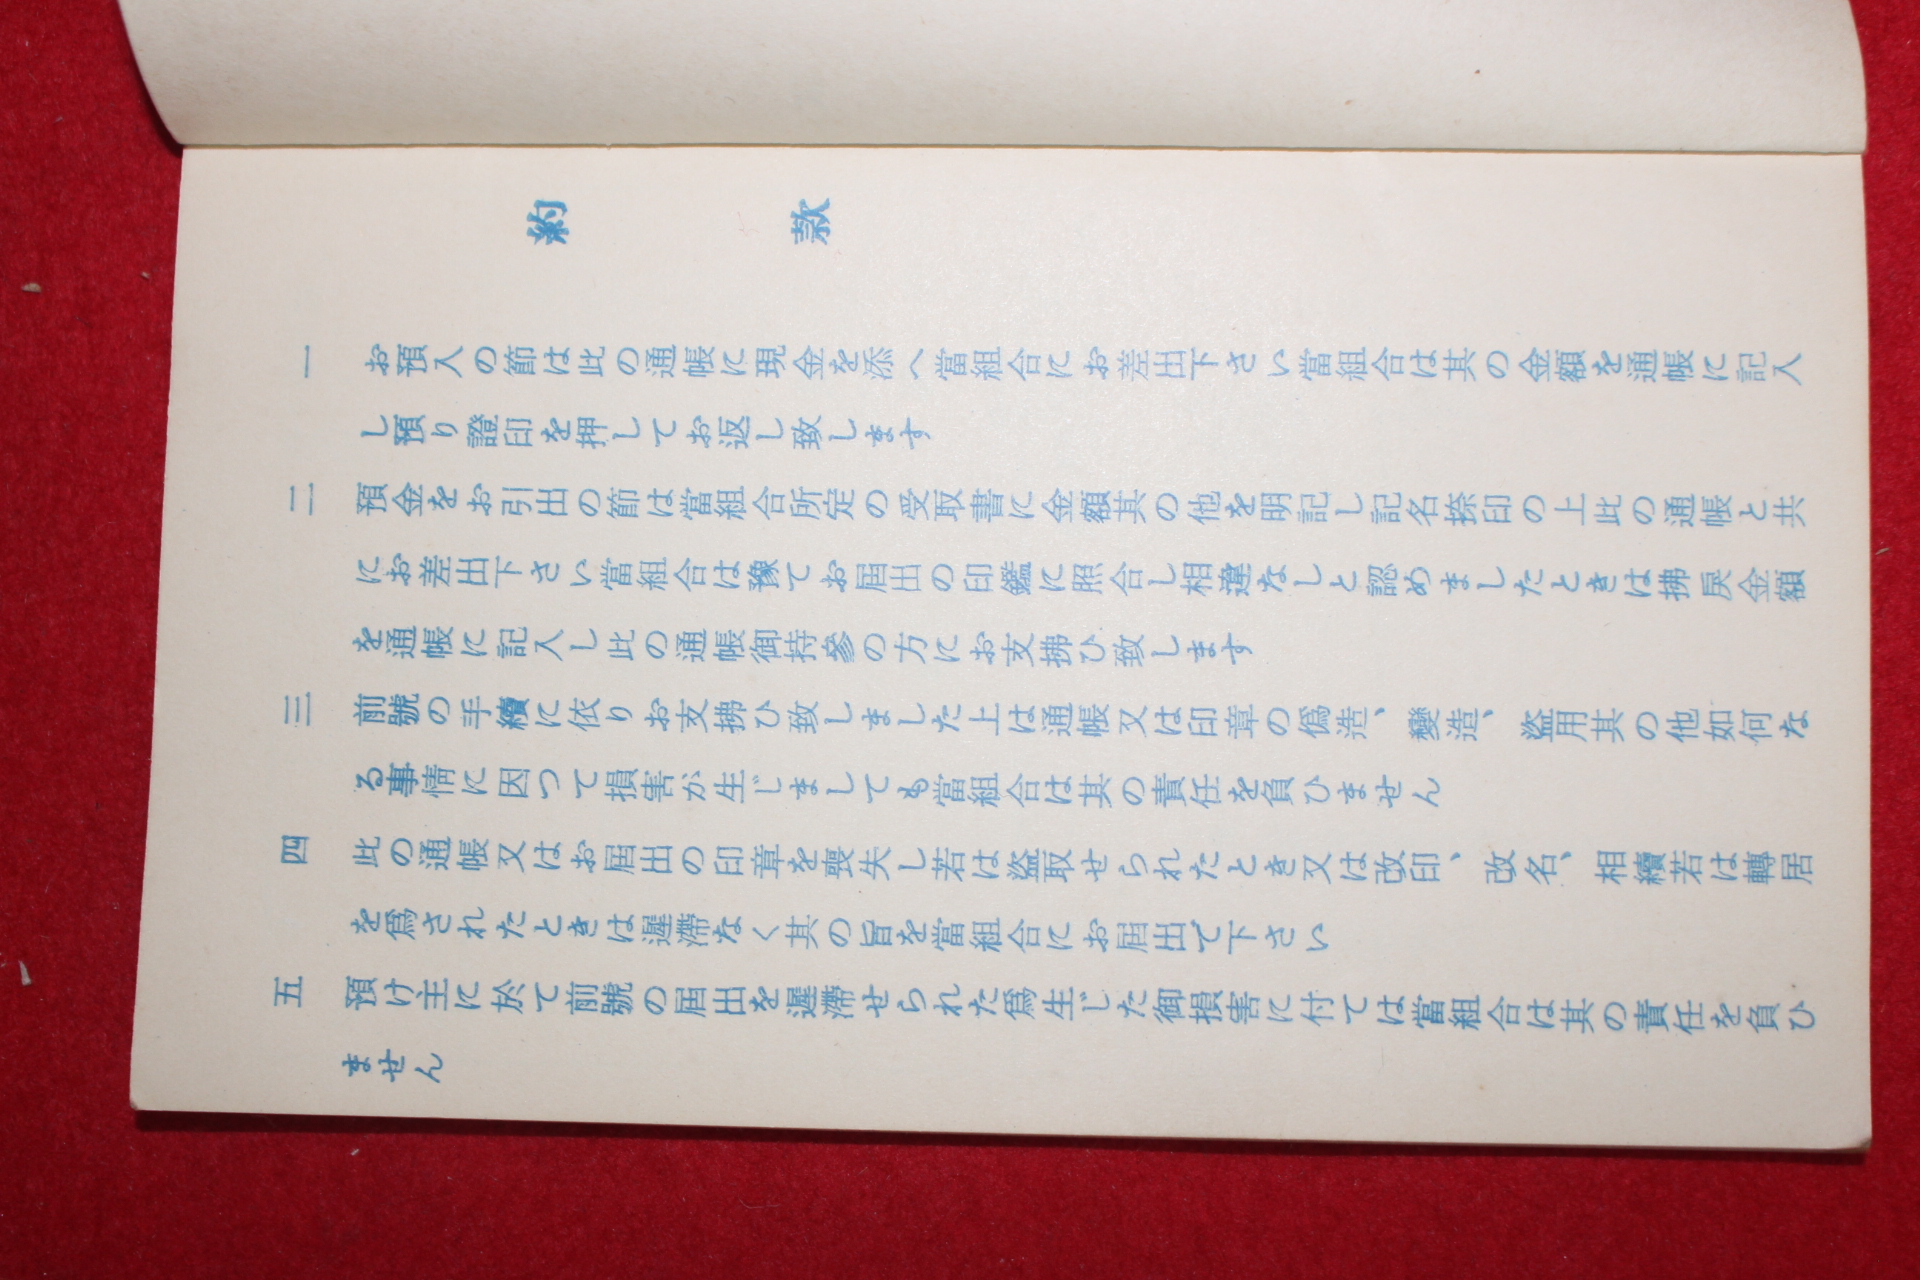 約款
一 お預入の節は此の通帳に現金を添へ當組合にお差出下さい當組合は其の金額を通帳に記入
し預り證印を押してお返し致します
二 預金をお引出の節は當組合所定の受取書に金額其の他を明記し記名捺印の上此の通帳と共
にお差出下さい當組合は豫てお屆出の印鑑に照合し相違なしと認めましたときは拂戻金額
を通帳に記入し此の通帳御持參の方にお支拂ひ致します
三 前號の手續に依りお支拂ひ致しました上は通帳又は印章の僞造、變造、盜用其の他如何な
る事情に因つて損害が生じましても當組合は其の責任を負ひません
四 此の通帳又はお屆出の印章を喪失し若は盜取せられたとき又は改印、改名、相續若は轉居
を爲されたときは遲滯なく其の旨を當組合にお屆出で下さい
五 預け主に於て前號の屆出を遲滯せられた爲生じた御損害に付ては當組合は其の責任を負ひ
ません